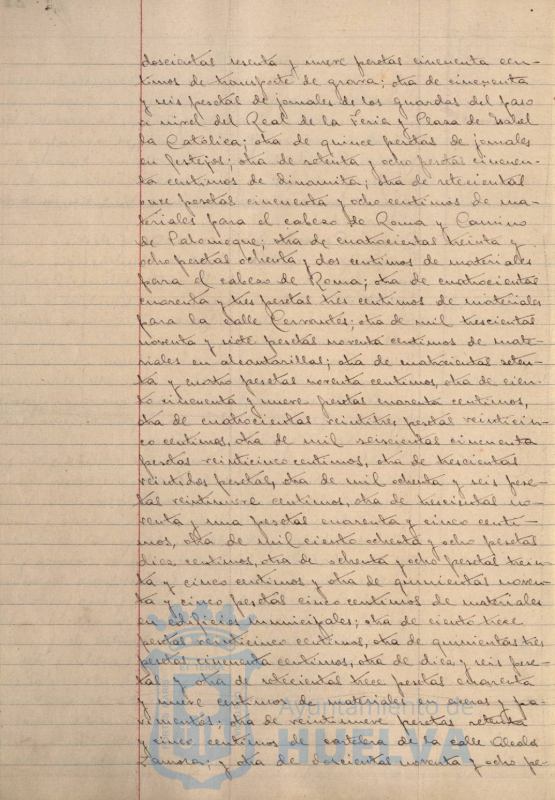 doscientas sesenta y nueve pesetas cincuenta cen-
timos de transporte de grava; otra de cincuenta
y seis pesetas de jornales de los guardas del paso
a nivel del Real de la Feria y Plaza de Isabel
la Católica; otra de quince pesetas de jornales
en festejos; otra de setenta y ocho pesetas cincuen-
ta centimos de dinamita; otra de setecientas
once pesetas cincuenta y ocho centimos de ma-
teriales para el cabezo de Roma y Camino
de Palomeque; otra de cuatrocientas treinta y
ocho pesetas ochenta y dos centimos de materiales
para el cabezo de Roma; otra de cuatrocientas
cuarenta y tres pesetas tres centimos de materiales
para la calle Cervantes; otra de mil trescientas
noventa y siete pesetas noventa centimos de mate-
riales en alcantarillas; otra de cuatrocientas seten-
ta y cuatro pesetas noventa centimos, otra de cien-
to cincuenta y nueve pesetas cuarenta centimos,
otra de cuatrocientas veintitres pesetas veinticin-
co centimos, otra de mil seiscientas cincuenta
pesetas veinticinco centimos, otra de trescientas
veintidos pesetas, otra de mil ochenta y seis pese-
tas veintinueve centimos, otra de trescientas no-
venta y una pesetas cuarenta y cinco centi-
mos, otra de mil ciento ochenta y ocho pesetas
diez centimos, otra de ochenta y ocho pesetas trein-
ta y cinco centimos y otra de quinientas noven-
ta y cinco pesetas cinco centimos de materiales
en edificios municipales; otra de ciento trece
pesetas veinticinco centimos, otra de quinientas tres
pesetas cincuenta centimos, otra de diez y seis pese-
tas y otra de setecientas trece pesetas cuarenta
y nueve centimos de materiales en aceras y pa-
vimentos; otra de veintinueve pesetas setenta
y cinco centimos de cartelera de la calle Alcalá
Zamora; y otra de doscientas noventa y ocho pe-
Ayuntamiento de
HUELVA